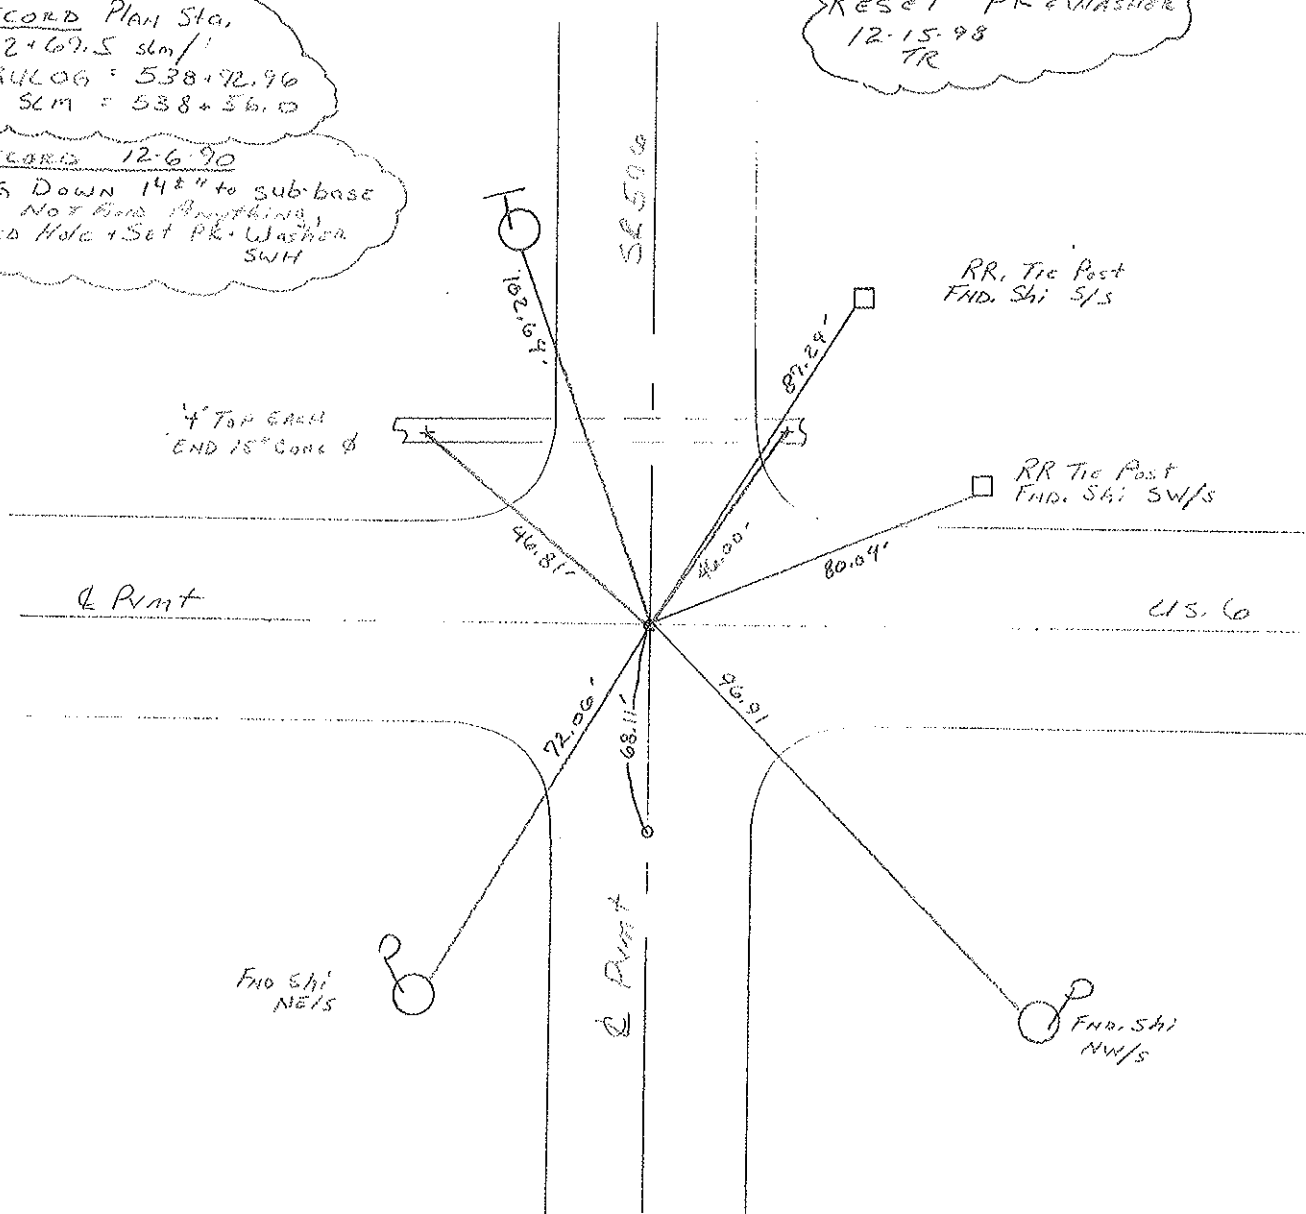 CORD Plan Sta.
2+69.5 slm/
RULOG = 538+92.96
SLM = 538+56.0
CORD 12-6-90
G DOWN 14±" to sub-base
NOT Find Anything,
ED Hole + Set PK+Washer
SWH
RESET PK+WASHER
12-15-98
TR
SR 576
102.64'
RR. Tie Post
FND. Shi S/S
87.24'
"+" TOP EACH
END 15" CONC
RR Tie Post
FND. Shi SW/S
46.81'
46.00'
80.04'
℄ Pvmt
U.S. 6
72.06'
68.11'
96.91
℄ Pvmt
FND Shi
NE/S
FND. Shi
NW/S